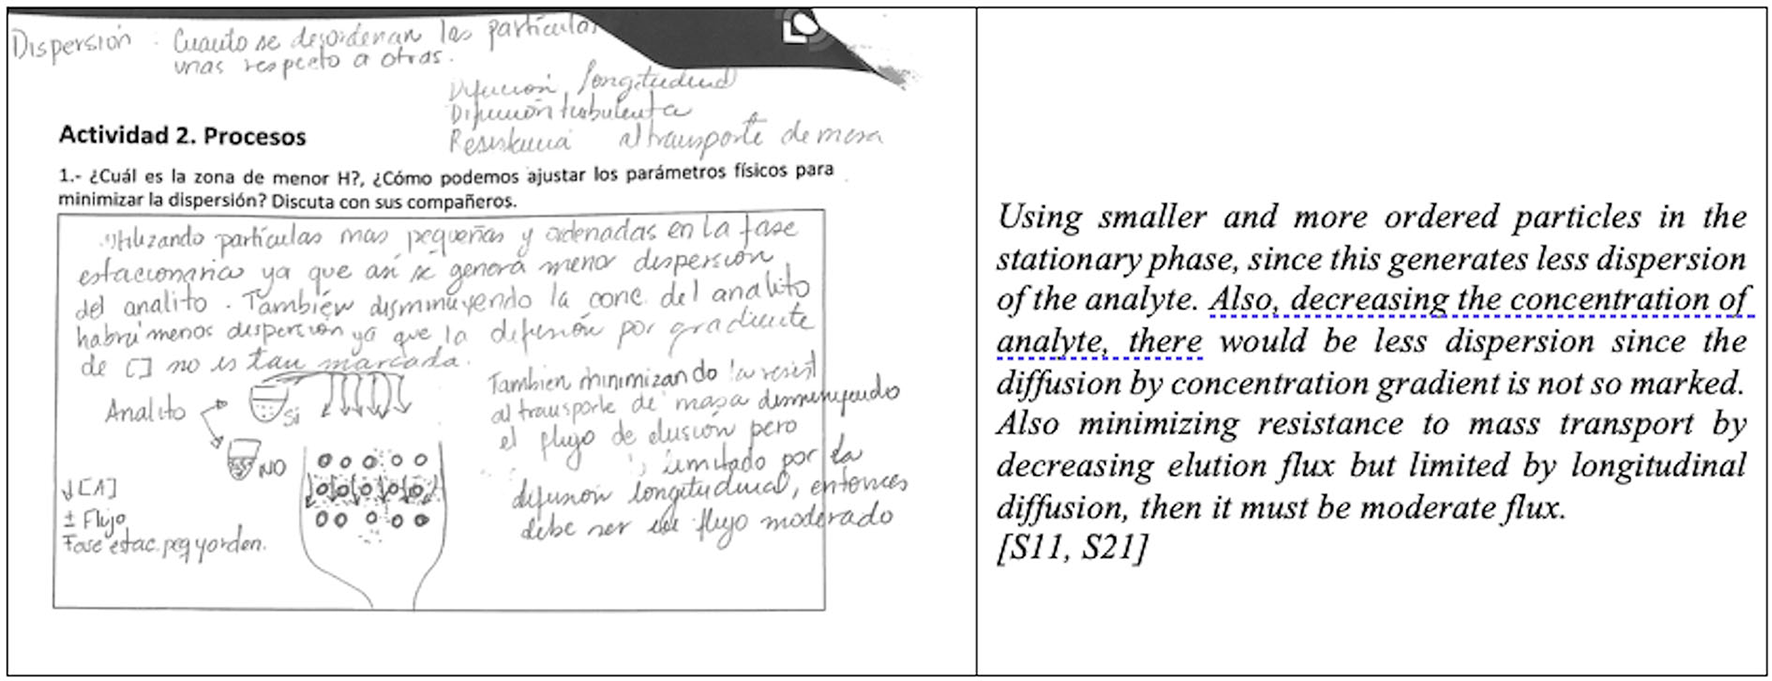 Dispersión : Cuanto se desordenan las partículas
unas respecto a otras.
Difución longitudinal
Difución turbulenta
Resistencia al transporte de masa
Actividad 2. Procesos
1.- ¿Cuál es la zona de menor H?, ¿Cómo podemos ajustar los parámetros físicos para
minimizar la dispersión? Discuta con sus compañeros.
Utilizando partículas mas pequeñas y ordenadas en la fase
estacionaria ya que así se genera menor dispersión
del analito. También disminuyendo la conc. del analito
habrá menos disperción ya que la difusión por gradiente
de [ ] no es tan marcada.
Analito
Si
NO
↓[A]
± Flujo
Fase estac. peq y orden.
Tambien minimizando la resist
al transporte de masa disminuyendo
el flujo de elusión pero
limitado por la
difusión longitudinal, entonces
debe ser un flujo moderado
Using smaller and more ordered particles in the
stationary phase, since this generates less dispersion
of the analyte. Also, decreasing the concentration of
analyte, there would be less dispersion since the
diffusion by concentration gradient is not so marked.
Also minimizing resistance to mass transport by
decreasing elution flux but limited by longitudinal
diffusion, then it must be moderate flux.
[S11, S21]